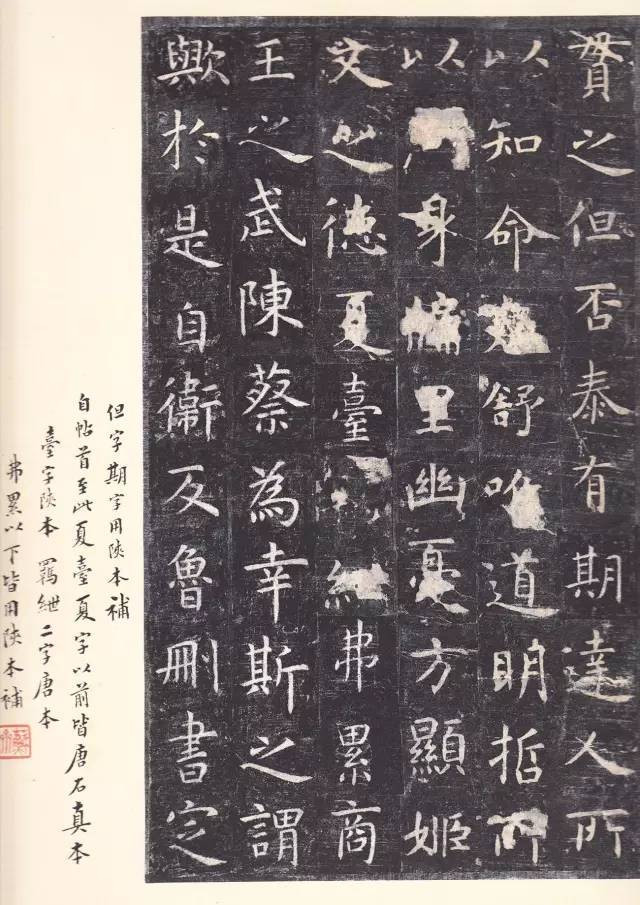 之但否泰有期達人所
以知命舒唯道明哲所
以身牖里幽憂方顯姬
文之德夏臺紲弗累商
王之武陳蔡為幸斯之謂
歟於是自衛反魯刪書定
但字期字用陝本補
自帖首至此夏臺夏字以前皆唐石真本
臺字陝本 羈紲二字唐本
弗累以下皆用陝本補